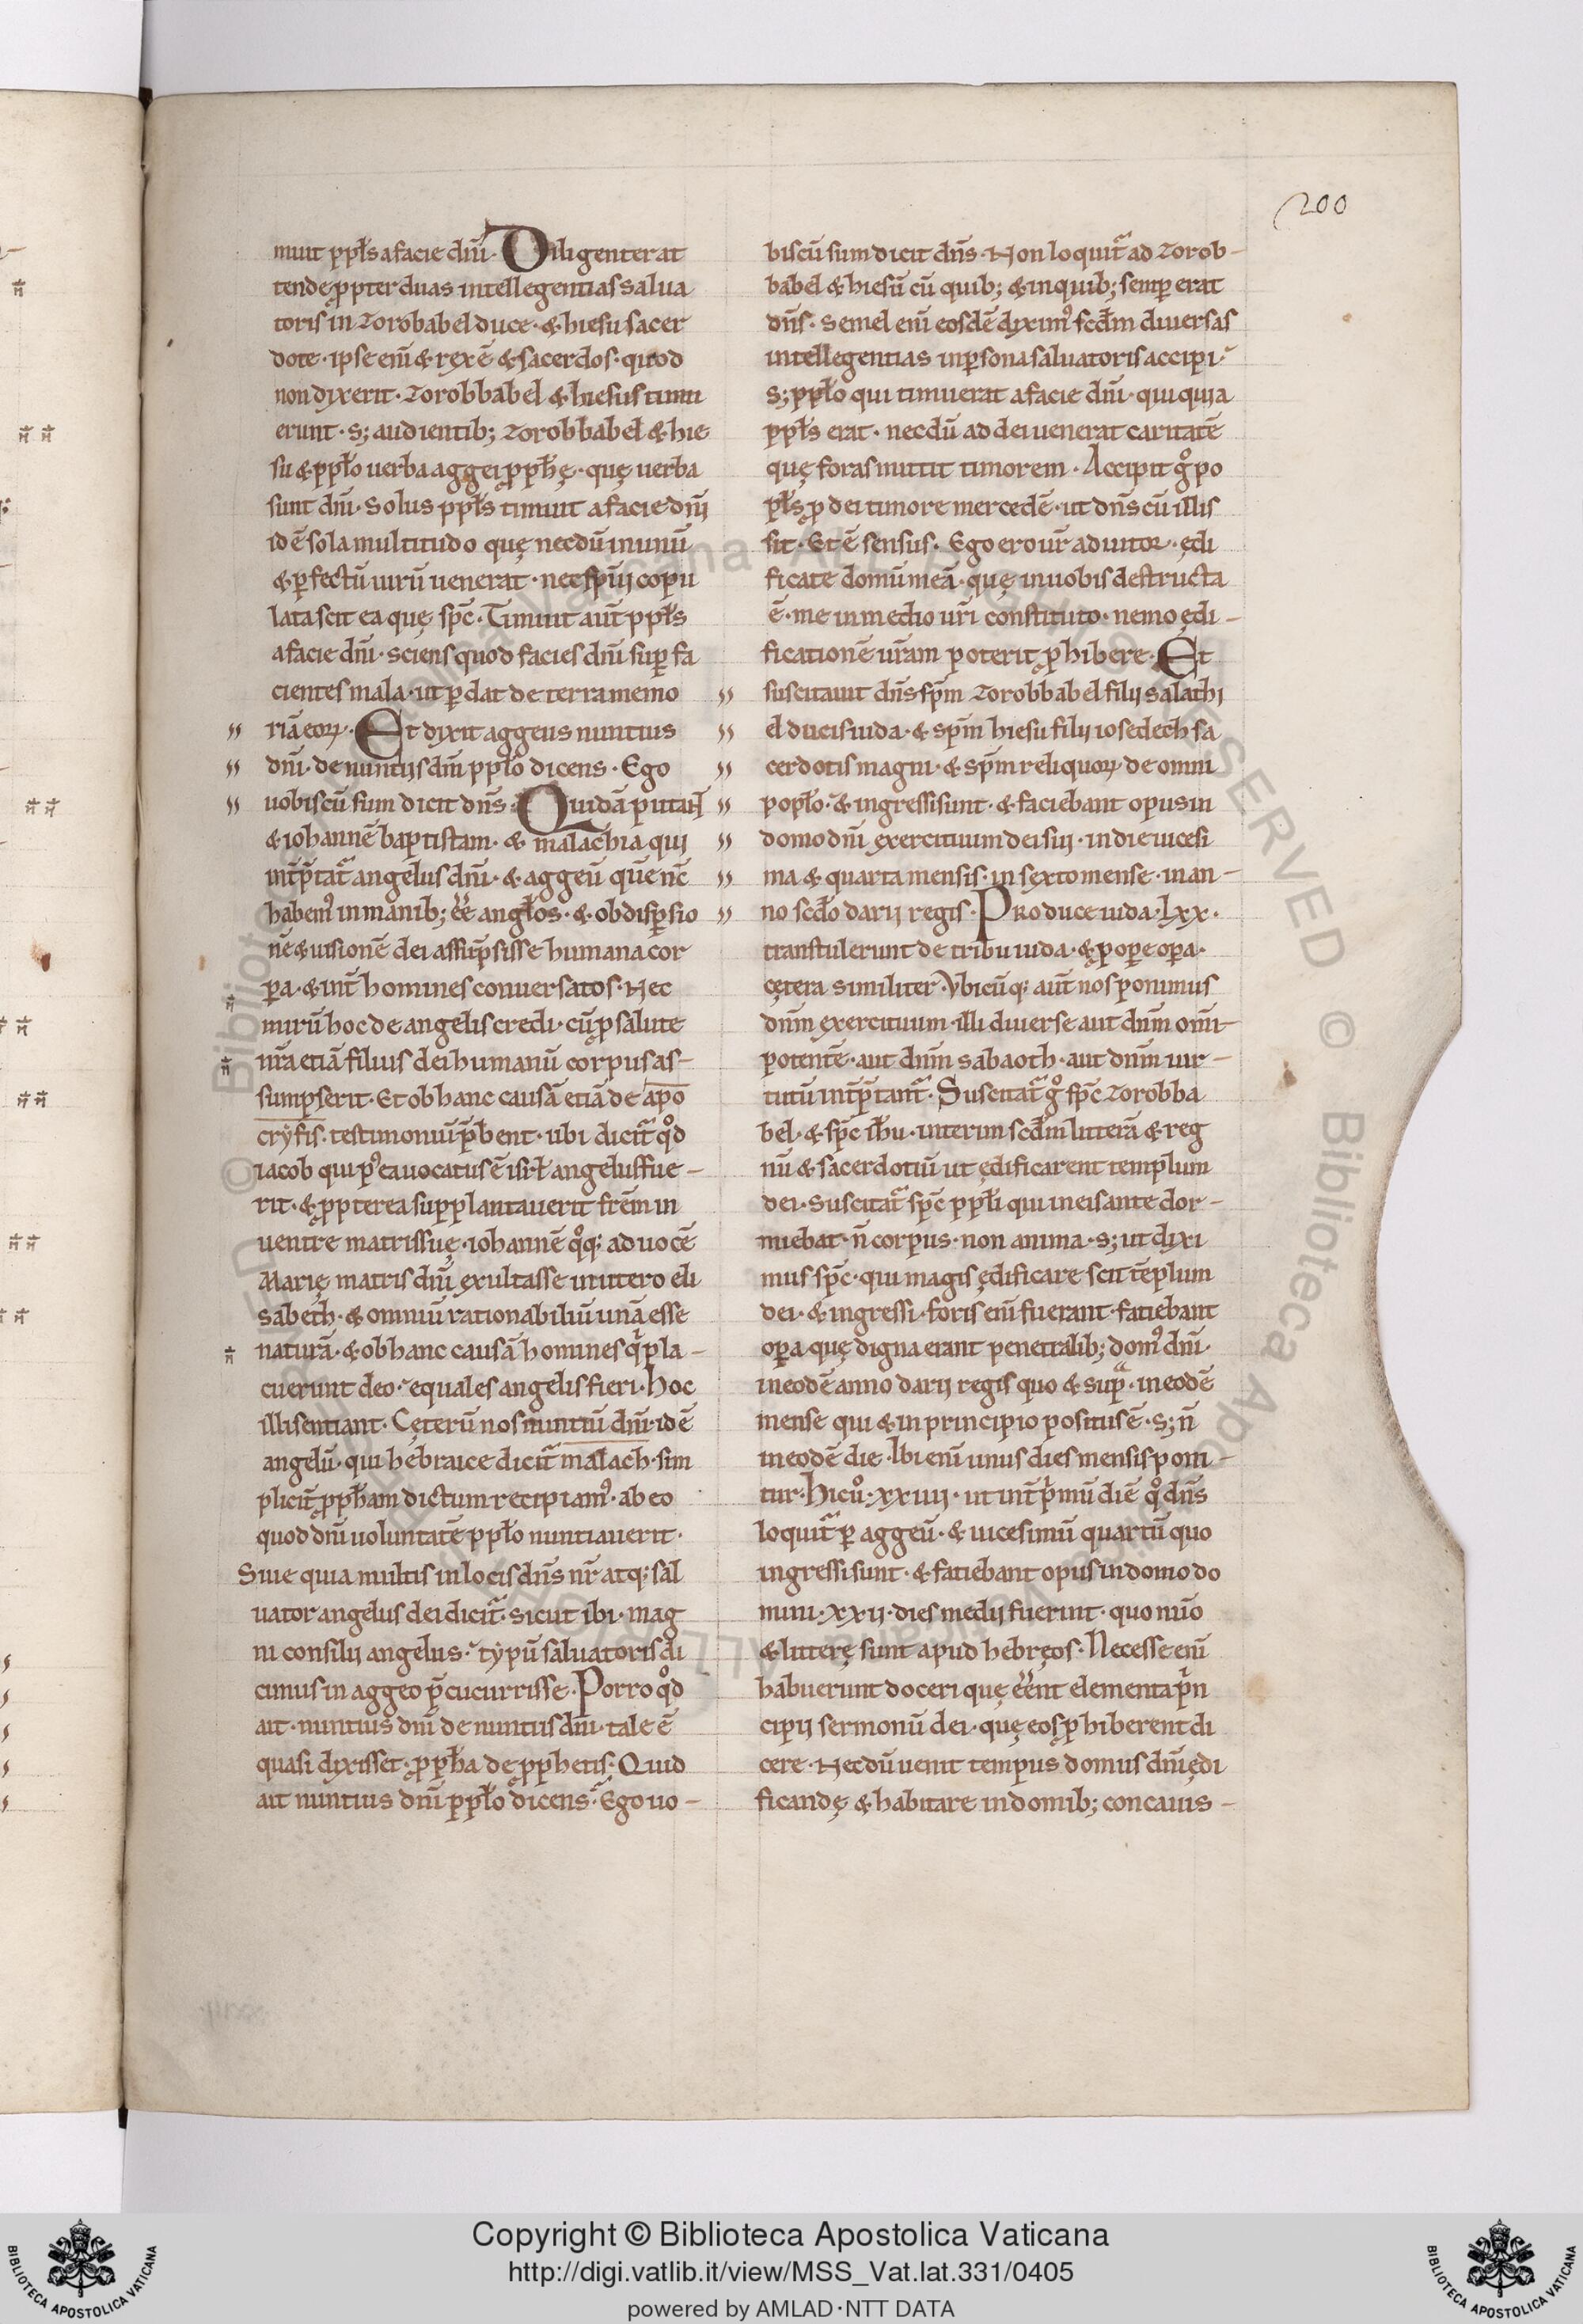 200
muit ppłs afacie dnī. Diligenter at
tende ꝓpter duas intellegentias salua
toris in Zorobabel duce. & hiesu sacer
dote. ipse enī & rex ē & sacerdos. quod
non dixerit. Zorobbabel & hiesus timu
erunt. s; audientib; Zorobbabel & hie
su & ppło uerba aggei ꝓph̄ę. quę uerba
sunt dnī. Solus ppłs timuit a facie dnī
id ē sola multitudo quę necdū in unū
& ꝑfectū uirū uenerat. nec spūi copu
lata scit ea quę spc̄. Timuit aūt ppłs
a facie dnī. sciens quod facies dnī suꝑ fa
cientes mala. ut ꝑdat de terra memo
riā eoꝝ. Et dixit aggeus nuntius
dnī. de nuntiis dnī ppło dicens. Ego
uobiscū sum dicit dn̄s. Quidā putant
& iohannē baptistam. & malachia qui
int̄p̄tat̄ angelus dnī. & aggeū quē nc̄
habem᾽ in manib; ēē angłos. & ob dispensio
nē & uisionē dei assūpsisse humana cor
pora. & int̄ homines conuersatos. Nec
mirū hoc de angelis credi. cū ꝓ salute
nr̄a etiā filius dei humanū corpus as-
sumpserit. Et ob hanc causā etiā de apo
cryfis. testimoniū p̄bent. ubi dicit̄ qd̊
iacob qui p᾽ea uocatus ē isrł angelus fue-
rit. & ꝓpterea supplantauerit frēm in
uentre matris suę. iohannē qq̊; ad uocē
Marię matris dnī exultasse in utero eli
sabeth. & omniū rationabiliū unā esse
naturā. & ob hanc causā homines qi pla-
cuerunt deo. equales angelis fieri. hoc
illi sentiant. Cęterū nos nuntiū dnī. id ē
angelū. qui hebraice dicit̄ malach. sim
plicit̄ ꝓph̄am dictum recipiam᾽. ab eo
quod dnī uoluntatē ppło nuntiauerit.
Siue quia multis in locis dn̄s nr̄ atq; sal
uator angelus dei dicit̄. sicut ibi. mag
ni consilii angelus. typū saluatoris di
cimus in aggeo p̄cucurrisse. Porro qd̊
ait. nuntius dnī de nuntiis dnī. tale ē
quasi dixisset. ꝓph̄a de ꝓphetis. Quid
ait nuntius dnī ppło dicens. Ego uo-
biscū sum dicit dn̄s. Non loquit̄ ad Zorob-
babel & hiesū cū quib; & in quib; semꝑ erat
dn̄s. Semel enī eosdē dixim᾽ scd̄m diuersas
intellegentias in ꝑsona saluatoris accipi.
s; ppło qui timuerat a facie dnī. qui quia
ppłs erat. necdū ad dei uenerat caritatē
quę foras mittit timorem. Accipit gͦ po
pułs ꝓ dei timore mercedē. ut dn̄s cū illis
sit. Et ē sensus. Ego ero ur̄ adiutor. ędi
ficate domū meā. quę in uobis destructa
ē. me in medio ur̄i constituto. nemo ędi-
ficationē ur̄am poterit ꝓhibere. Et
suscitauit dn̄s spm̄ Zorobbabel filii salathi
el ducis iuda. & spm̄ hiesu filii iosedech sa
cerdotis magni. & spm̄ reliquoꝝ de omni
popło. & ingressi sunt. & faciebant opus in
domo dnī exercituum dei sui. in die uicesi
ma & quarta mensis. in sexto mense. in an-
no scdo darii regis. Pro duce iuda. lxx.
transtulerunt de tribu iuda. & ꝓ opere opera.
cętera similiter. Vbicūq; aūt nos ponimus
dnm̄ exercituum. illi diuerse aut dnm̄ omi-
potentē. aut dnm̄ sabaoth. aut dnm̄ uir-
tutū int̄p̄tant̄. Suscitat̄ gͦ spc̄ Zorobba
bel. & spc̄ ih̄u. interim scd̄m litterā & reg
nū & sacerdotiū ut ędificarent templum
dei. Suscitat̄ spc̄ ppłi qui in eis ante dor-
miebat. n̄ corpus. non anima. s; ut dixi
mus spc̄. qui magis ędificare scit tēplum
dei. & ingressi. foris enī fuerant. fatiebant
opera quę digna erant penetralib; dom᾽ dnī.
in eodē anno darii regis quo & supᵃ. in eodē
mense qui & in principio positus ē. s; n̄
in eodē die. Ibi enī unus dies mensis poni-
tur. hic uͦ. xxiiii. ut int̄ p̄mū diē qͦ dn̄s
loquit̄ ꝑ aggeū. & uicesimū quartū quo
ingressi sunt. & fatiebant opus in domo do
mini. xxii. dies medii fuerint. quo nūo
& litterę sunt apud hebręos. Necesse enī
habuerunt doceri quę ēēnt elementa p̄n
cipii sermonū dei. quę eos ꝓhiberent di
cere. Necdū uenit tempus domus dnī ędi
ficandę & habitare in domib; concauis-
Copyright © Biblioteca Apostolica Vaticana
http://digi.vatlib.it/view/MSS_Vat.lat.331/0405
powered by AMLAD·NTT DATA
BIBLIOTECA APOSTOLICA VATICANA
BIBLIOTECA APOSTOLICA VATICANA